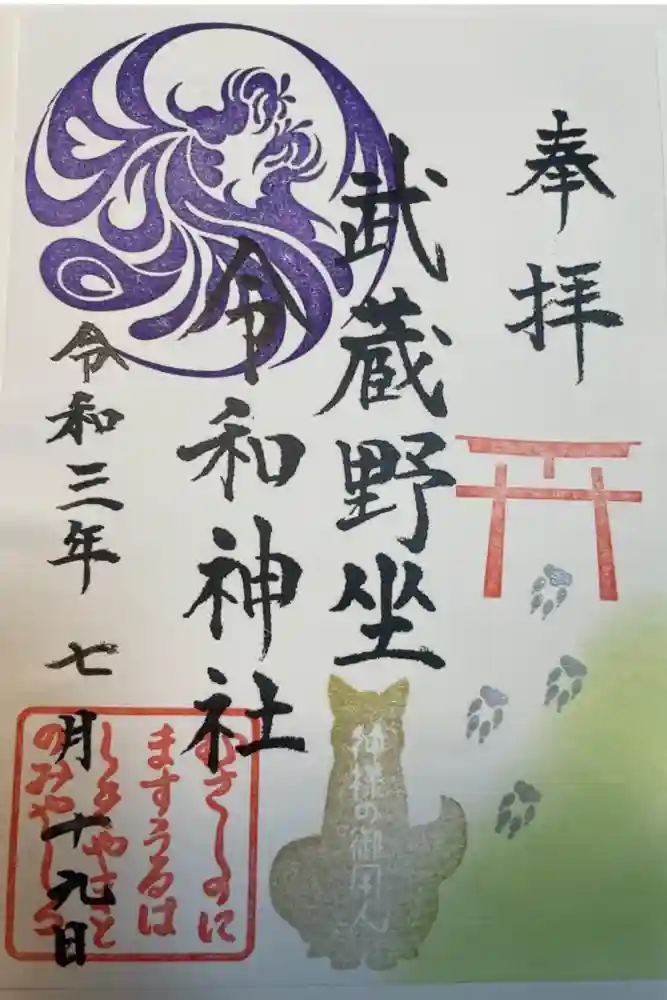 奉拝
武蔵野坐
令和神社
令和三年 七月十九日
神様の御用人
むさしのに
ますうるは
しきやまと
のみやしろ